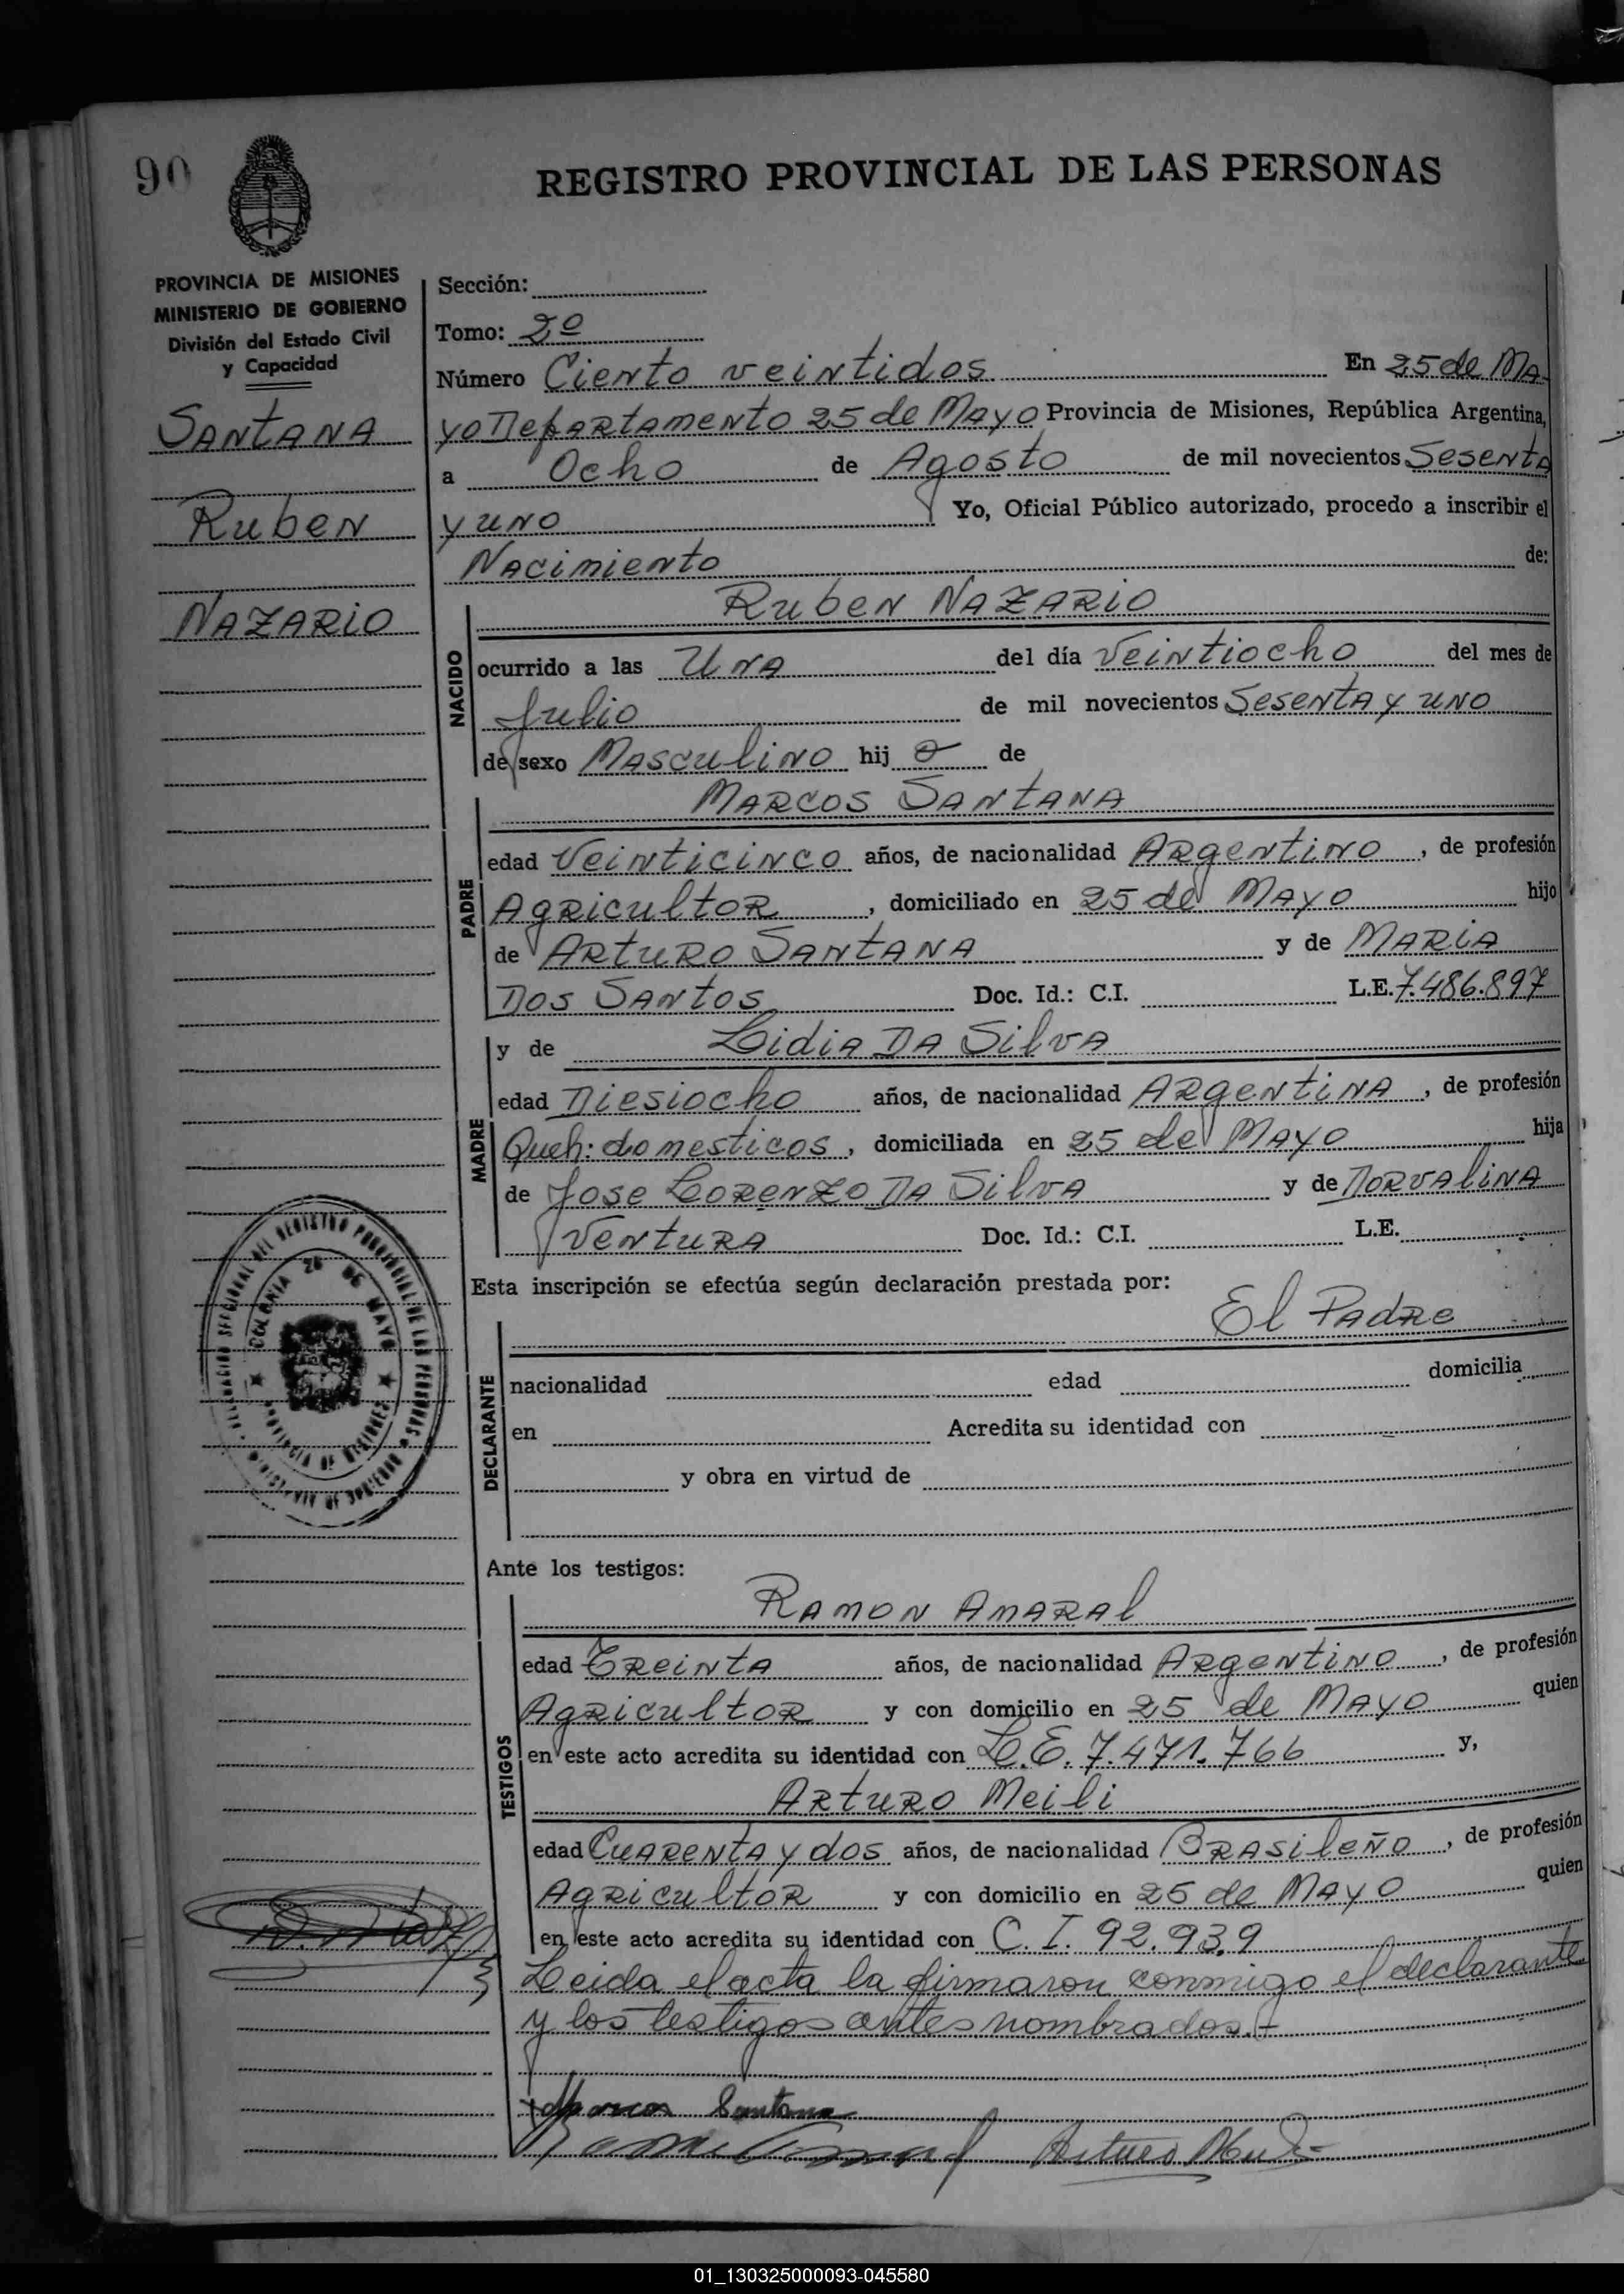 90
REGISTRO PROVINCIAL DE LAS PERSONAS
PROVINCIA DE MISIONES
MINISTERIO DE GOBIERNO
División del Estado Civil
y Capacidad
SANTANA
Ruben
NAZARIO
Sección:
Tomo: 2º
Número Ciento veintidos En 25 de MA-
yo Departamento 25 de Mayo Provincia de Misiones, República Argentina,
a Ocho de Agosto de mil novecientos Sesenta
y uno Yo, Oficial Público autorizado, procedo a inscribir el
Nacimiento de:
NACIDO
Ruben NAZARIO
ocurrido a las Una del día Veintiocho del mes de
Julio de mil novecientos Sesenta y uno
de sexo Masculino hijo de
PADRE
MARCOS SANTANA
edad Veinticinco años, de nacionalidad Argentino, de profesión
Agricultor, domiciliado en 25 de Mayo hijo
de Arturo SANTANA y de MARIA
DOS SANTOS Doc. Id.: C.I. L.E. 7.486.897
MADRE
y de Lidia DA Silva
edad Diesiocho años, de nacionalidad Argentina, de profesión
Queh: domesticos, domiciliada en 25 de Mayo hija
de Jose Lorenzo DA Silva y de Dorvalina
Ventura Doc. Id.: C.I. L.E.
Esta inscripción se efectúa según declaración prestada por:
El Padre
DECLARANTE
nacionalidad edad domicilia
en Acredita su identidad con
y obra en virtud de
COLONIA 25 DE MAYO
Ante los testigos:
TESTIGOS
Ramon Amaral
edad Treinta años, de nacionalidad Argentino, de profesión
Agricultor y con domicilio en 25 de Mayo quien
en este acto acredita su identidad con L.E. 7.471.766 y,
Arturo Meili
edad Cuarenta y dos años, de nacionalidad Brasileño, de profesión
Agricultor y con domicilio en 25 de Mayo quien
en este acto acredita su identidad con C.I. 92.939
Leida el acta la firmaron conmigo el declarante
y los testigos antes nombrados.-
Marcos Santana
Arturo
01_130325000093-045580